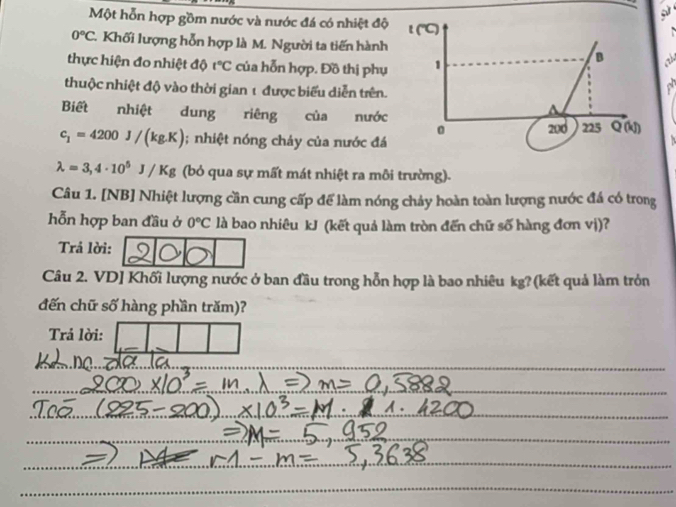 Một hỗn hợp gồm nước và nước đá có nhiệt độ
0°C. Khối lượng hỗn hợp là M. Người ta tiến hành
thực hiện đo nhiệt độ t°C của hỗn hợp. Đồ thị phụ
thuộc nhiệt độ vào thời gian t được biểu diễn trên.
Biết nhiệt dung riêng của nước
c₁ = 4200 J/(kg.K); nhiệt nóng chảy của nước đá
λ = 3,4·10⁵ J/Kg (bỏ qua sự mất mát nhiệt ra môi trường).
t (°C)
1
B
A
0
200
225
Q (kJ)
Câu 1. [NB] Nhiệt lượng cần cung cấp để làm nóng chảy hoàn toàn lượng nước đá có trong
hỗn hợp ban đầu ở 0°C là bao nhiêu kJ (kết quả làm tròn đến chữ số hàng đơn vị)?
Trả lời: 200
Câu 2. VD] Khối lượng nước ở ban đầu trong hỗn hợp là bao nhiêu kg? (kết quả làm tròn
đến chữ số hàng phần trăm)?
Trả lời:
đá là
200 x10³ = m.λ => m = 0,5882
Tcó (225-200) x10³ = M. 1. 4200
=> M = 5,952
=> M - m = 5,3638